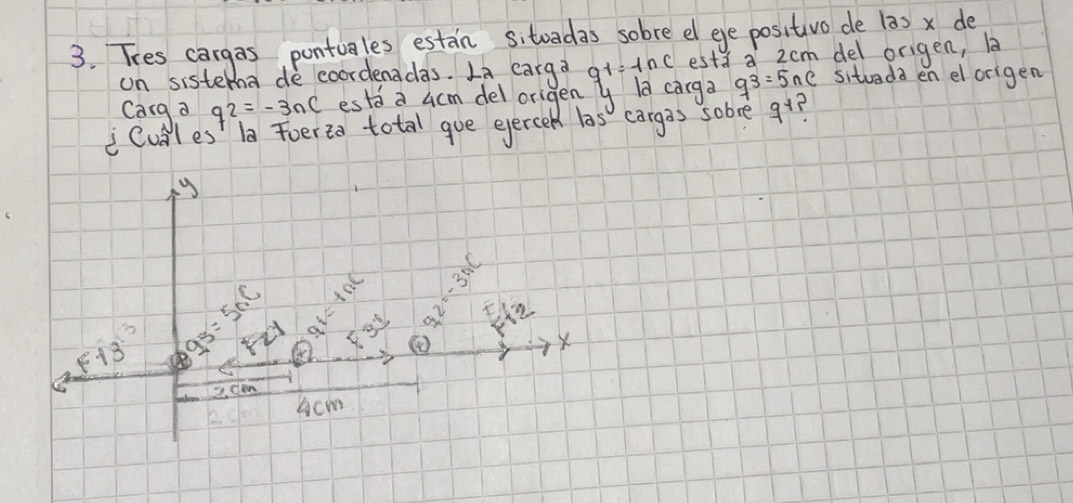 3. Tres cargas puntuales están situadas sobre el eje positivo de las x de
un sistema de coordenadas. La carga q1=1nC está a 2cm del origen, la
carga q2=-3nC está a 4cm del origen y la carga q3=5nC situada en el origen
¿Cuál es la Fuerza total que ejercen las cargas sobre q1?
y
q3=5nC
q1=1nC
q2=-3nC
F13
F21
F31
F12
x
2cm
4cm